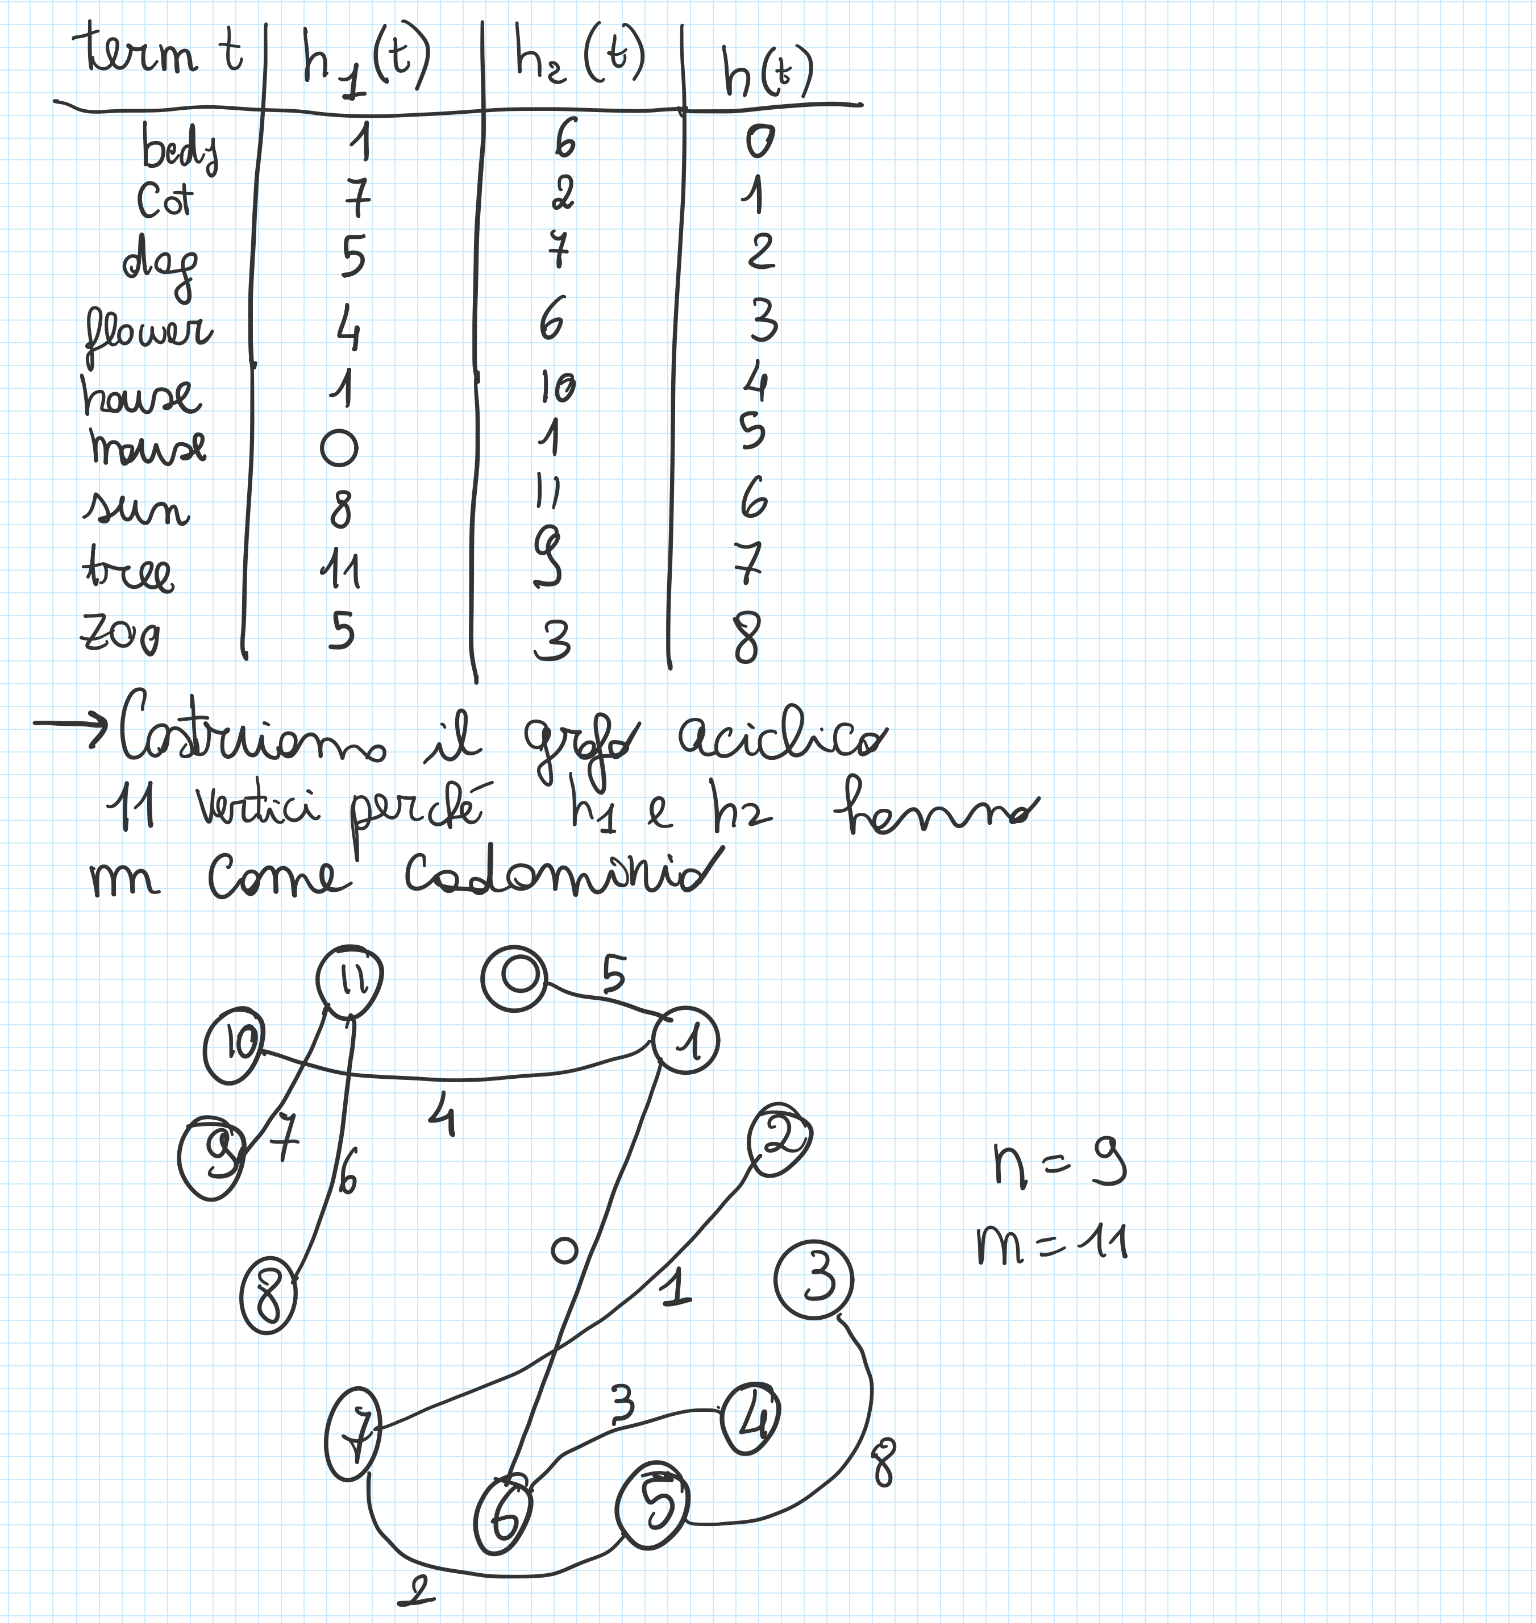 term t h₁(t) h₂(t) h(t)
body 1 6 0
cat 7 2 1
dog 5 7 2
flower 4 6 3
house 1 10 4
mouse 0 1 5
sun 8 11 6
tree 11 9 7
zoo 5 3 8
→ Costruiamo il grafo aciclico
11 vertici perché h₁ e h2 hanno
m come codominio
11 0 5
10 1
4
9 7 2
6
n = 9
0 1 3 m = 11
8
3
7 4 8
6 5
2